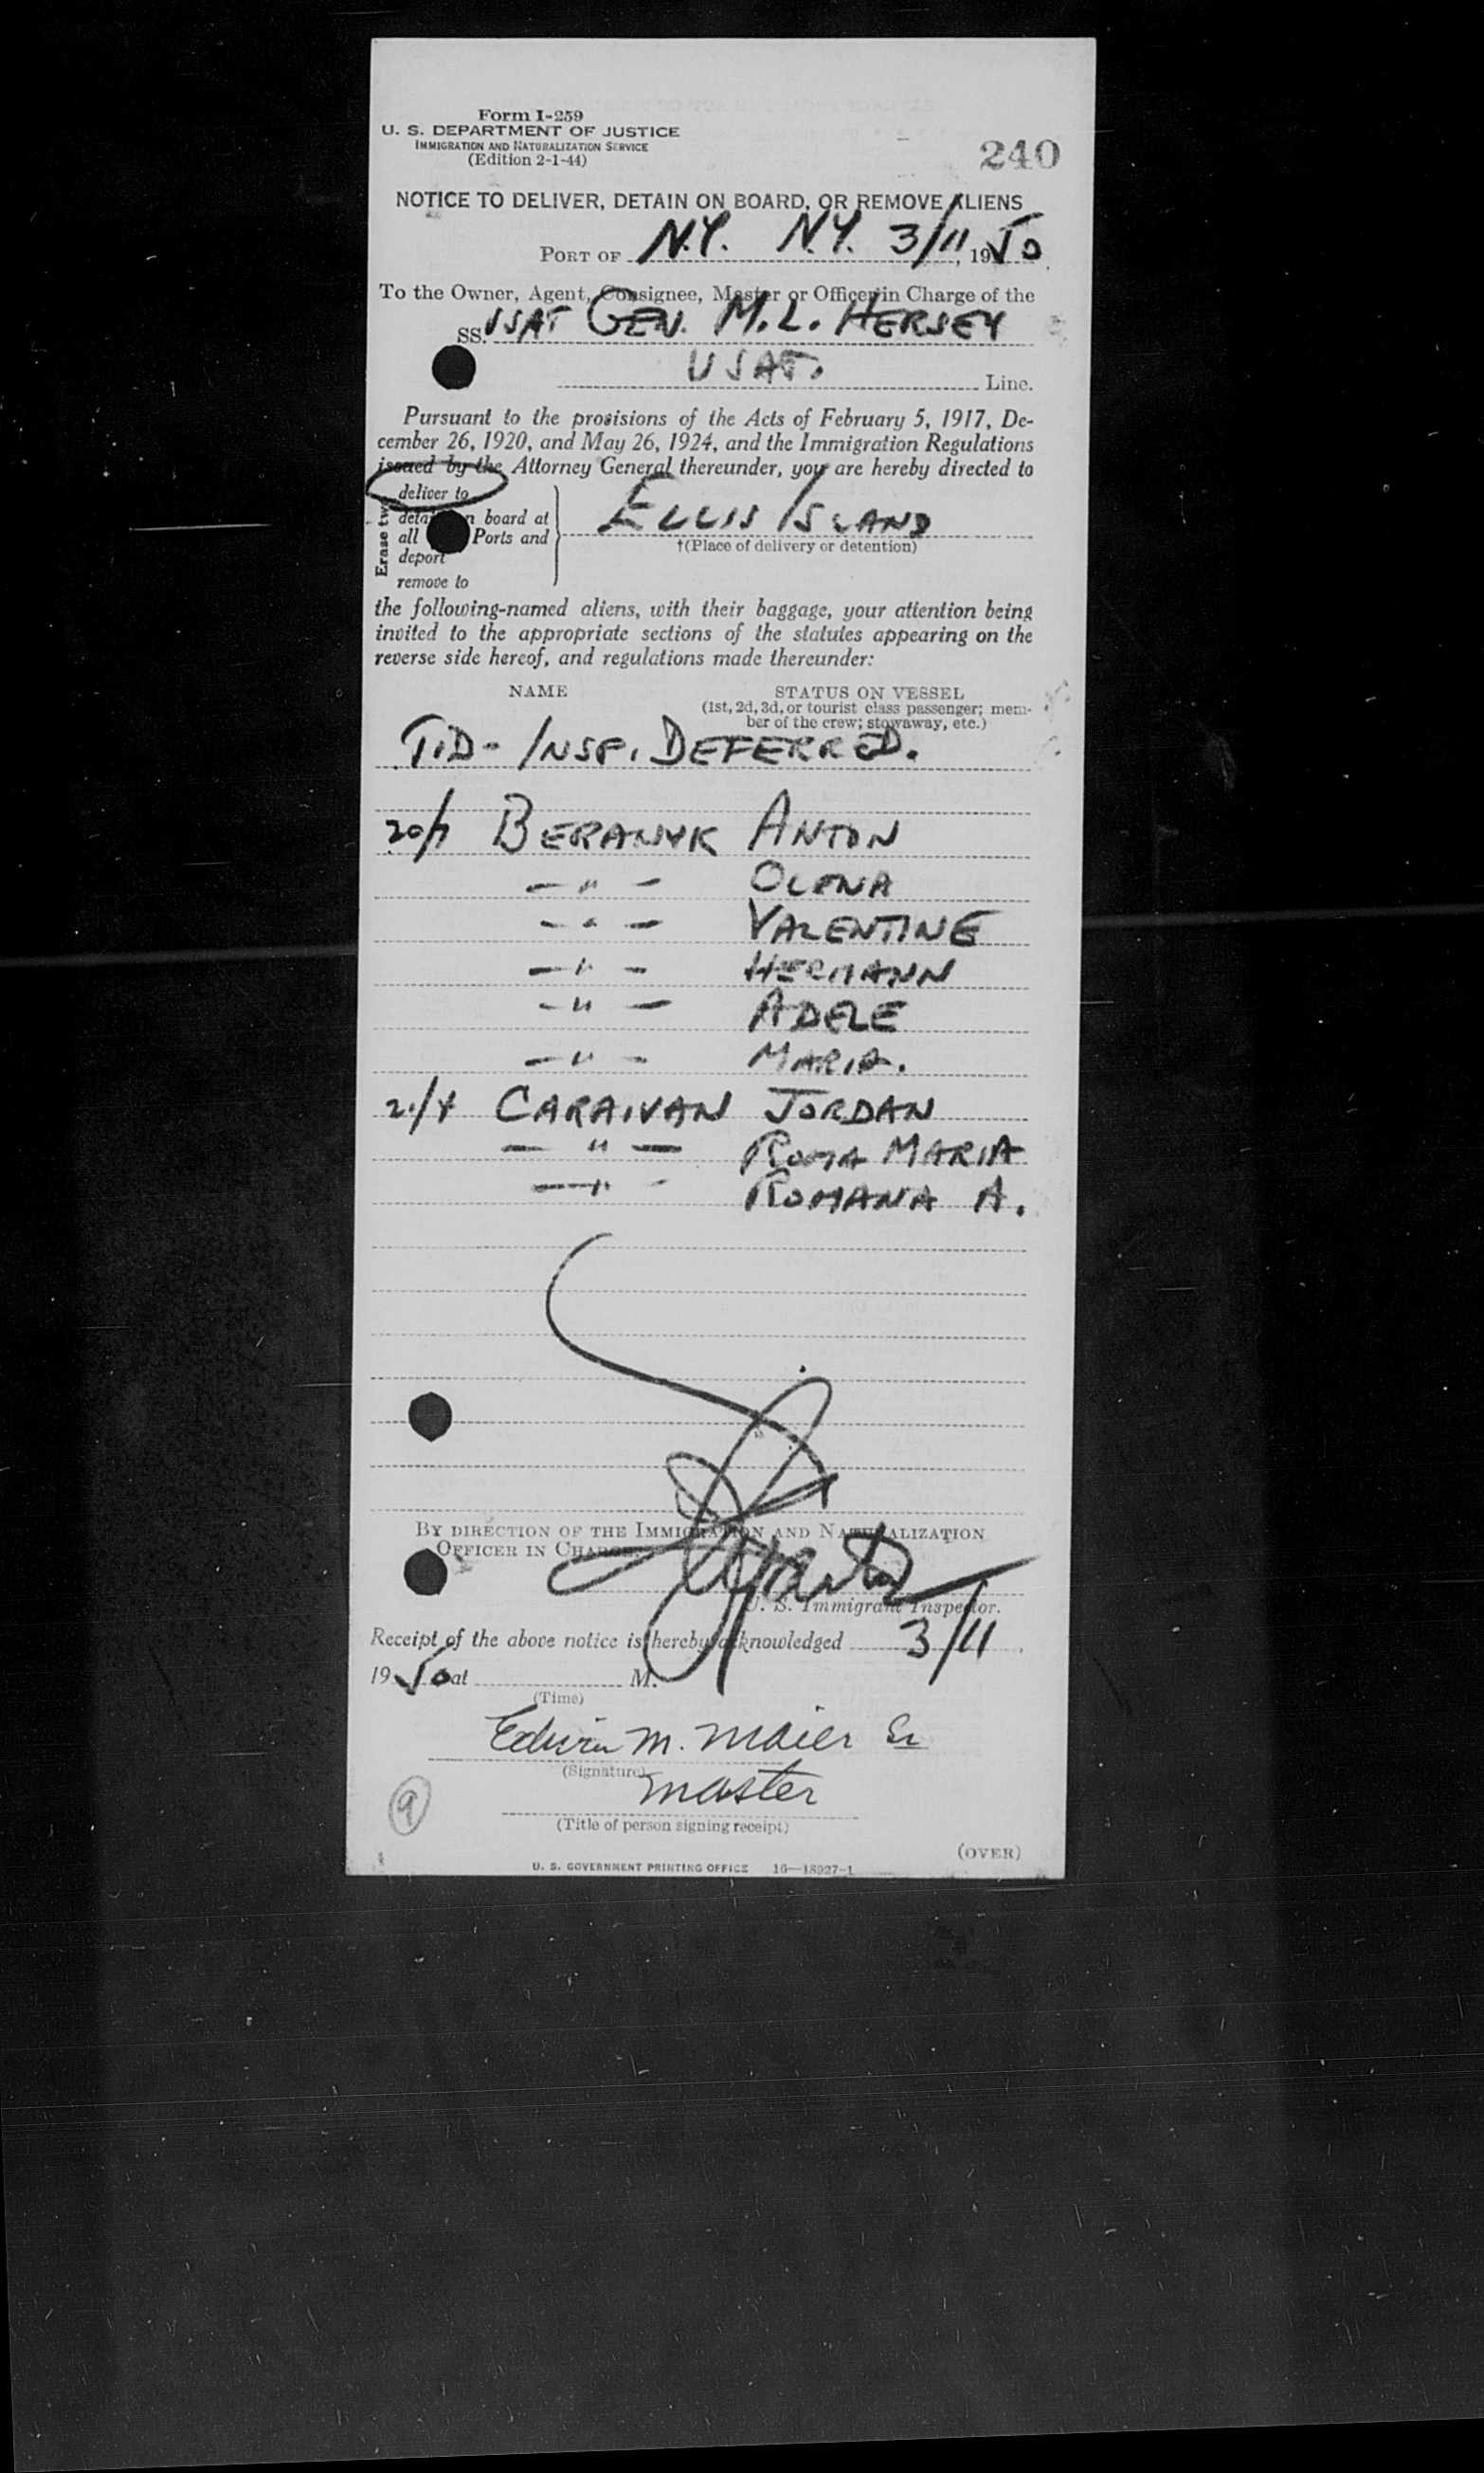 Form I-259
U. S. DEPARTMENT OF JUSTICE
IMMIGRATION AND NATURALIZATION SERVICE
(Edition 2-1-44)
240
NOTICE TO DELIVER, DETAIN ON BOARD, OR REMOVE ALIENS
PORT OF N.Y. N.Y. 3/11, 1950
To the Owner, Agent, Consignee, Master or Officer in Charge of the
SS. USAT GEN. M.L. HERSEY
USAT. Line.
Pursuant to the provisions of the Acts of February 5, 1917, De-
cember 26, 1920, and May 26, 1924, and the Immigration Regulations
issued by the Attorney General thereunder, you are hereby directed to
Erase two
deliver to
detain on board at
all Ports and
deport
remove to
ELLIS ISLAND
†(Place of delivery or detention)
the following-named aliens, with their baggage, your attention being
invited to the appropriate sections of the statutes appearing on the
reverse side hereof, and regulations made thereunder:
NAME STATUS ON VESSEL
(1st, 2d, 3d, or tourist class passenger; mem-
ber of the crew; stowaway, etc.)
T.D- INSP. DEFERRED.
20/7 BERANYK ANTON
— " — OLENA
— " — VALENTINE
— " — HERMANN
— " — ADELE
— " — MARIA.
21/4 CARAIVAN JORDAN
— " — ROMA MARIA
— " — ROMANA A.
BY DIRECTION OF THE IMMIGRATION AND NATURALIZATION
OFFICER IN CHARGE
U. S. Immigrant Inspector.
Receipt of the above notice is hereby acknowledged 3/11,
1950 at M.
(Time)
Edwin M. Maier Sr
(Signature)
Master
(Title of person signing receipt)
9
(OVER)
U. S. GOVERNMENT PRINTING OFFICE 16—18027-1